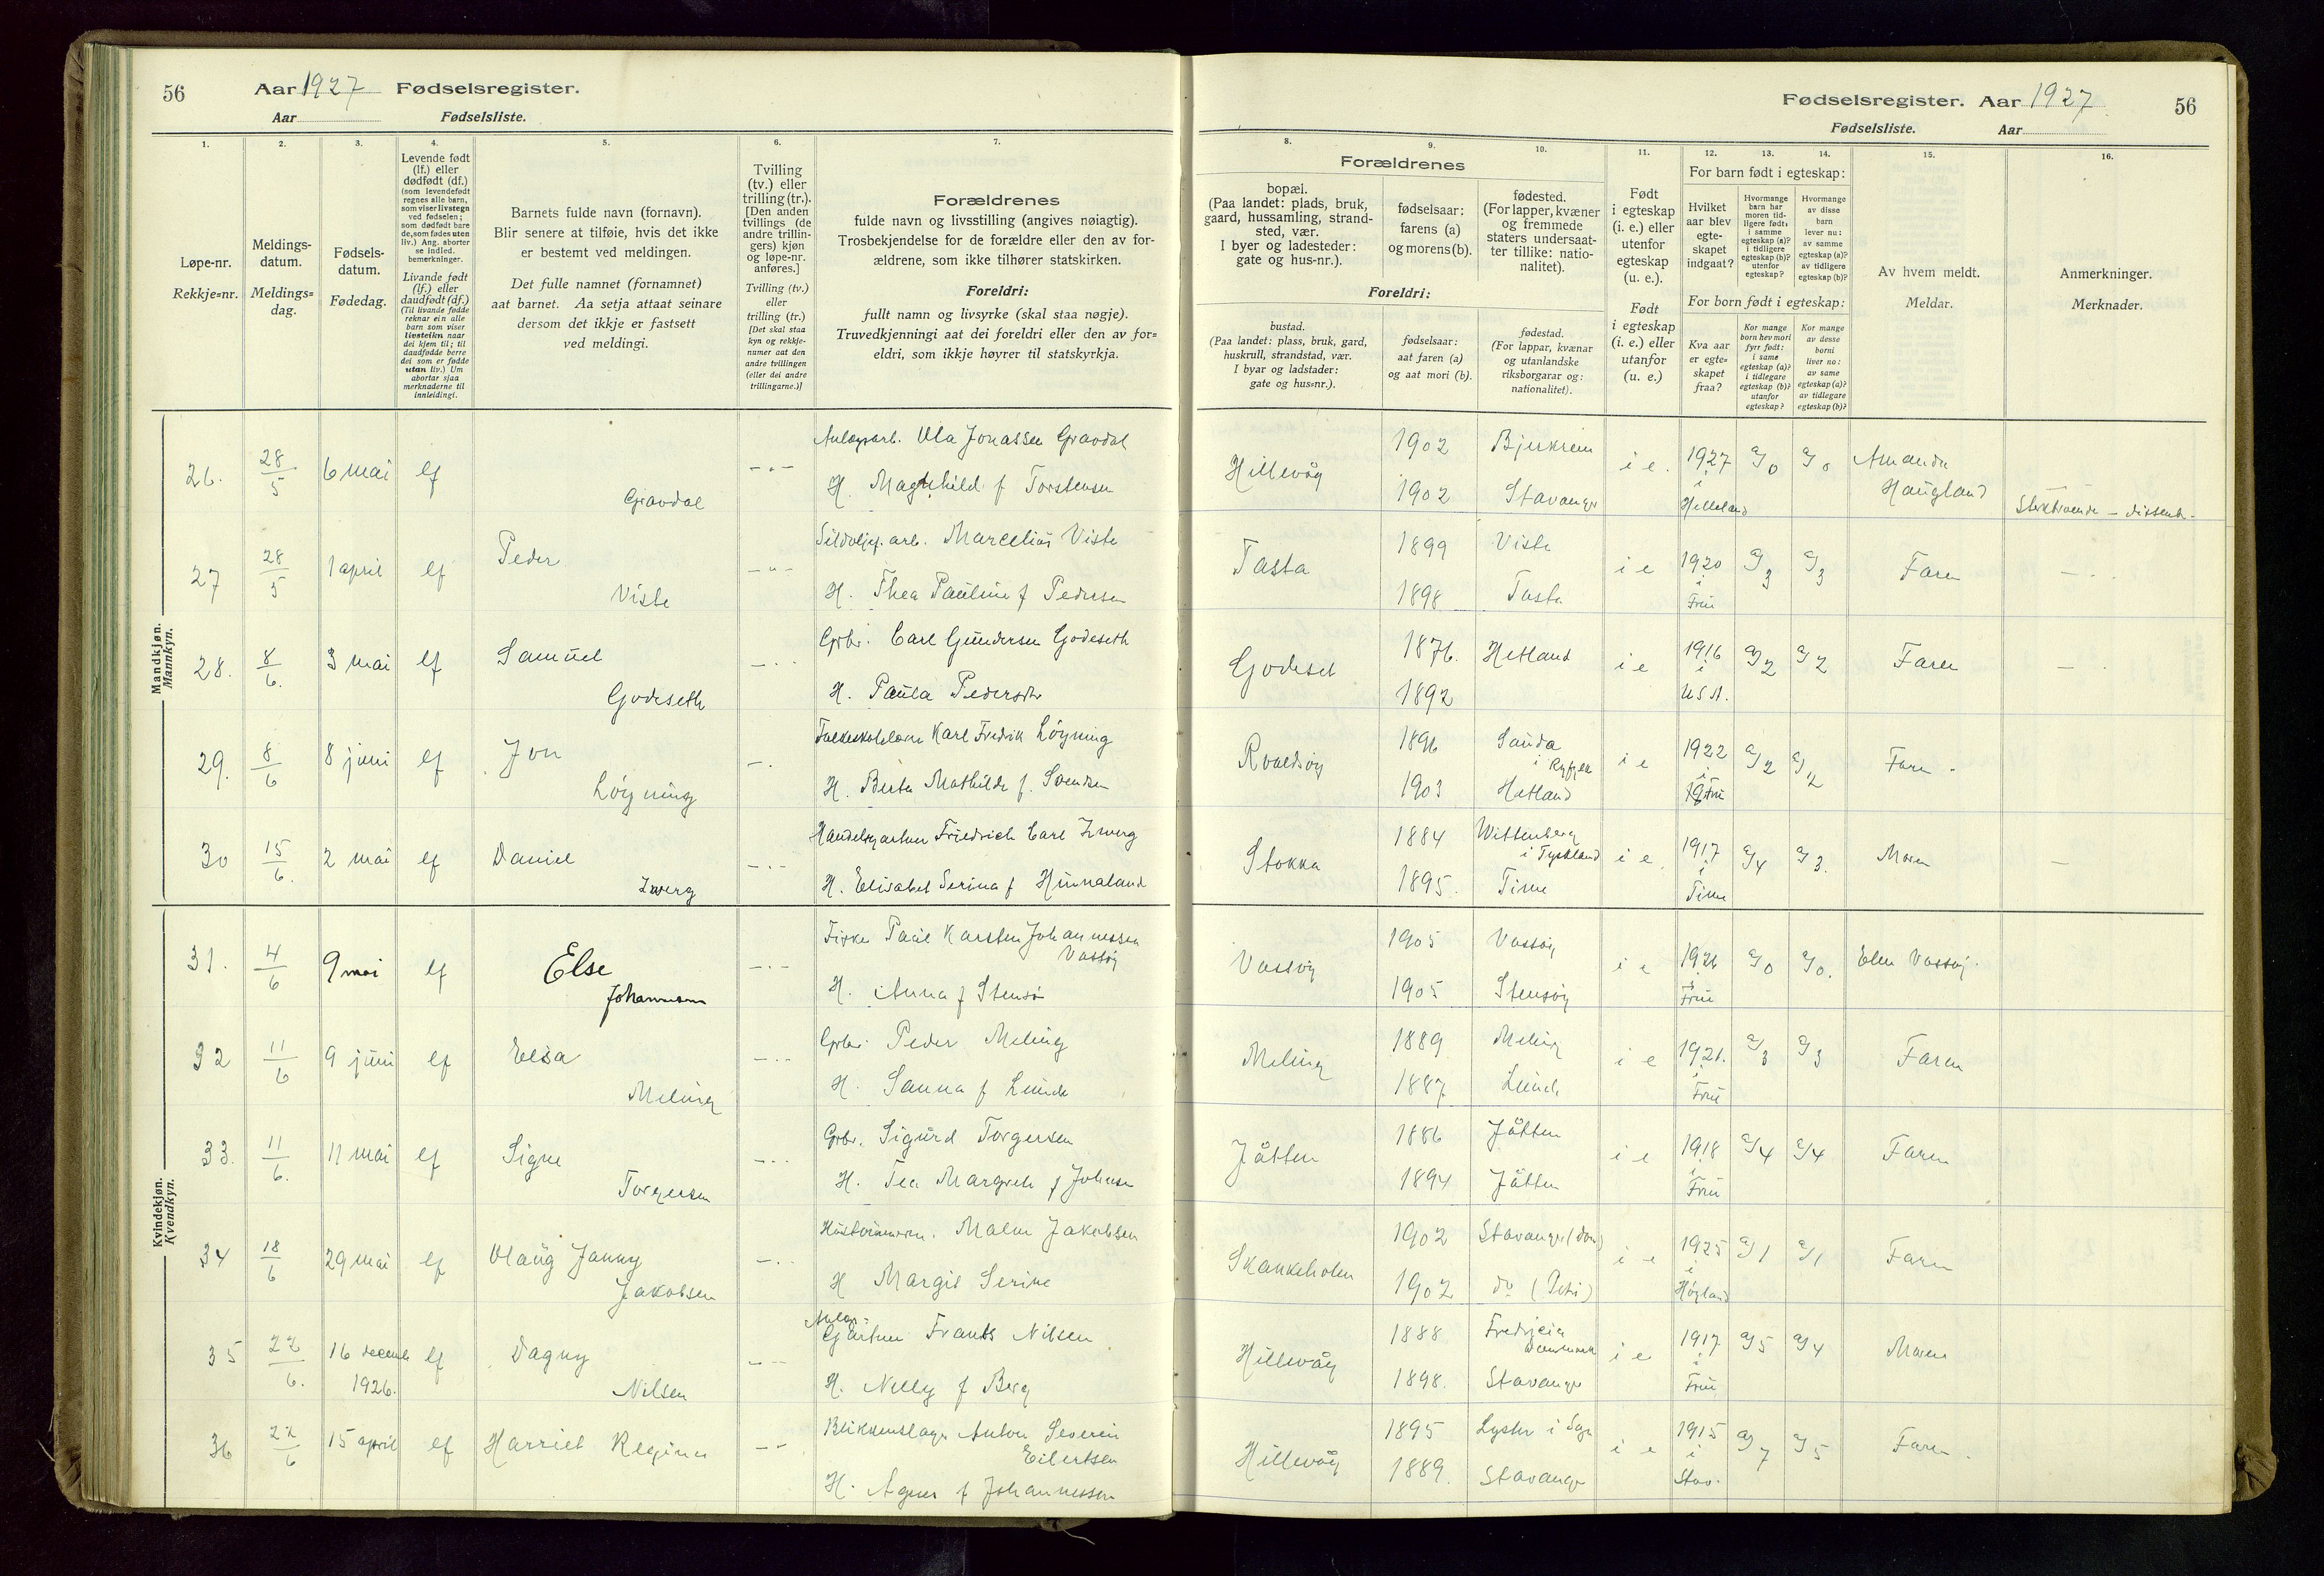 56
Aar 1927 Fødselsregister.
Aar Fødselsliste.
Fødselsregister. Aar 1927.
56
Fødselsliste. Aar
1. 2. 3. 4. 5. 6. 7.
Løpe-nr.
Rekkje-nr.
Meldings-
datum.
Meldings-
dag.
Fødsels-
datum.
Fødedag.
Levende født
(lf.) eller
dødfødt (df.)
(som levendefødt
regnes alle barn,
som viser livstegn
ved fødselen;
som dødfødt bare
de, som fødes uten
liv.) Ang. aborter
se indled.
bemerkninger.
Livande født
(lf.) eller
daudfødt (df.)
(Til livande fødde
reknar ein alle
barn som viser
livsteikn naar
dei kjem til; til
daudfødde berre
dei som er fødde
utan liv.) Um
abortar sjaa
merknaderne til
innleidingi.
Barnets fulde navn (fornavn).
Blir senere at tilføie, hvis det ikke
er bestemt ved meldingen.
Det fulle namnet (fornamnet)
aat barnet. Aa setja attaat seinare
dersom det ikkje er fastsett
ved meldingi.
Tvilling
(tv.) eller
trilling (tr.).
[Den anden
tvillings (de
andre trillin-
gers) kjøn
og løpe-nr.
anføres.]
Tvilling (tv.)
eller
trilling (tr.)
[Det skal staa
kyn og rekkje-
numer aat den
andre tvillingen
(eller dei andre
trillingarne.)]
Forældrenes
fulde navn og livsstilling (angives nøiagtig).
Trosbekjendelse for de forældre eller den av for-
ældrene, som ikke tilhører statskirken.
Foreldri:
fullt namn og livsyrke (skal staa nøgje).
Truvedkjenningi aat dei foreldri eller den av for-
eldri, som ikkje høyrer til statskyrkja.
8. 9. 10. 11. 12. 13. 14. 15. 16.
Forældrenes
bopæl.
(Paa landet: plads, bruk,
gaard, hussamling, strand-
sted, vær.
I byer og ladesteder:
gate og hus-nr.).
fødselsaar:
farens (a)
og morens (b).
fødested.
(For lapper, kvæner
og fremmede
staters undersaat-
ter tillike: natio-
nalitet).
Foreldri:
bustad.
(Paa landet: plass, bruk, gard,
huskrull, strandstad, vær.
I byar og ladstader:
gate og hus-nr.).
fødselsaar:
aat faren (a)
og aat mori (b).
fødestad.
(For lappar, kvænar
og utanlandske
riksborgarar og:
nationalitet).
Født
i egteskap
(i. e.) eller
utenfor
egteskap
(u. e.).
Født
i egteskap
(i. e.) eller
utanfor
(u. e.)
For barn født i egteskap:
Hvilket
aar blev
egte-
skapet
indgaat?
Hvormange
barn har
moren tid-
ligere født:
i samme
egteskap (a)?
i tidligere
egteskap (b)?
utenfor
egteskap?
Hvormange
av disse
barn
lever nu:
av samme
egteskap (a)?
av tidligere
egteskap (b)?
For born født i egteskap:
Kva aar
er egte-
skapet
fraa?
Kor mange
born hev mori
fyrr født:
i same
egteskap (a)?
i tidlegare
egteskap (b)?
utanfor
egteskap?
Kor mange
av desse
borni
liver no:
av same
egteskap (a)?
av tidlegare
egteskap (b)?
Av hvem meldt.
Meldar.
Anmerkninger.
Merknader.
Mandkjøn.
Mannkyn.
26. 28/5 6 mai lf Gravdal Anlægsarb. Ola Jonassen Gravdal
H. Magnhild f Torstensen
Hillevåg 1902 Bjerkreim i e. 1927 a/0 a/0 Amanda Haugland
1902 Stavanger i Helleland
27 28/5 1 april lf Peder Viste Sildoljef. arb. Marcelius Viste
H. Thea Pauline f Pedersen
Tasta 1899 Viste i e 1920 a/3 a/3 Faren
1898 Tasta i Frue
28. 8/6. 3 mai lf Samuel Godeseth Grbr. Carl Gundersen Godeseth
H. Paula Pedersdtr
Godeset 1876. Hetland i e 1916 a/2 a/2 Faren
1892 i U S A.
29. 8/6 8 juni lf Jon Løyning Folkeskolelærer Karl Fredrik Løyning
H. Berta Mathilde f. Svendsen
Roaldsøy 1896 Sauda i Ryfylke i e 1922 a/2 a/2 Faren
1903 Hetland i Frue
30 15/6. 2 mai lf Daniel Zwerg Handelsgartner Friedrich Carl Zwerg
H. Elisabet Serina f Hinnaland
Stokka 1884 Wittenberg i Tyskland i e. 1917 a/4 a/3. Moren
1895. Time i Time
Kvindekjøn.
Kvendkyn.
31. 4/6 9 mai lf Else Johannessen Fisker Paul Karsten Johannessen Vassøy
H. Anna f Stensø
Vassøy 1905 Vassøy i e 1926 a/0 a/0. Elen Vassøy.
1905 Stensøy i Frue
32 11/6 9 juni lf Elsa Meling Grbr. Peder Meling
H. Sanna f Lunde
Meling 1889 Meling i e 1921. a/3 a/3 Faren
1887 Lunde i Frue
33. 11/6. 11 mai lf Signe Torgersen Grbr. Sigurd Torgersen
H. Tea Margrete f Johnsen
Jåtten 1886 Jåtten i e 1918 a/4 a/4 Faren
1894 Jåtten i Frue
34 18/6 29 mai lf Olaug Janny Jakobsen Hustømmerm. Malm Jakobsen
H Margit Serine
Skankeholen 1902 Stavanger (Dom) i e 1925 a/1 a/1 Faren
1902 do (Petri) i Høyland
35 22/6. 16 decemb 1926. lf Dagny Nilsen Gjørtner Frants Nilsen
H. Nelly f Berg
Hillevåg 1888 Fredricia Danmark i e 1917 a/5 a/4 Moren
1898. Stavanger i Frue
36 22/6 15 april lf Harriet Regina Blikkenslager Anton Severin Eilertsen
H. Agnes f Johannessen
Hillevåg 1895 Lyster i Sogn i e 1915 a/7 a/5 Faren
1889. Stavanger i Stav.